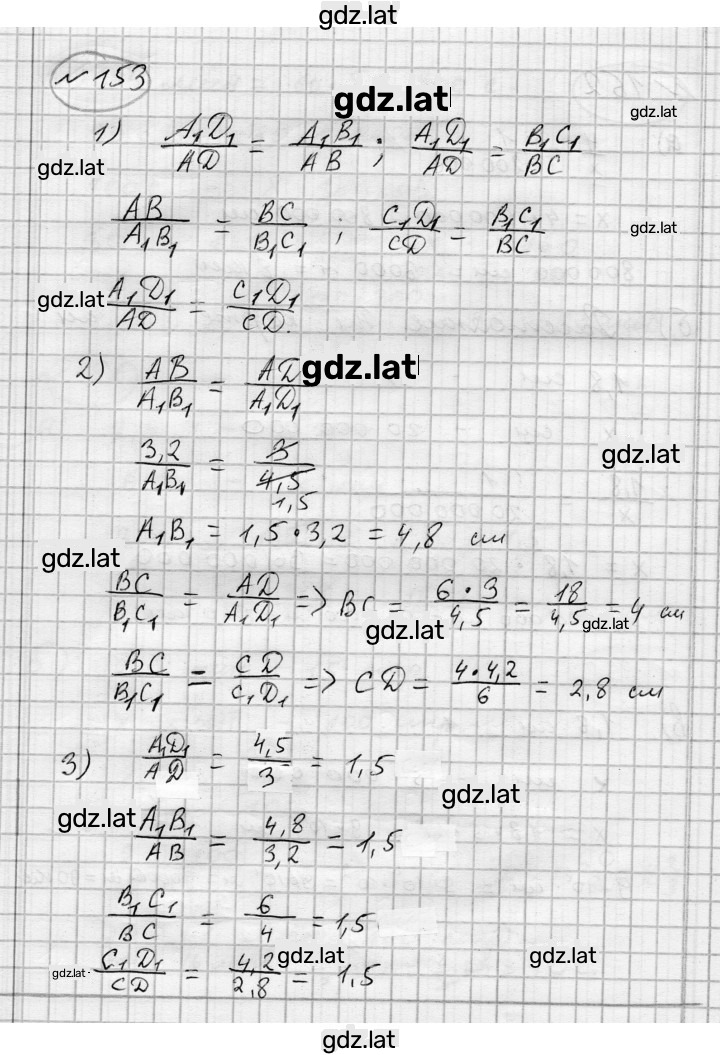 gdz.lat
№153
gdz.lat
gdz.lat
1) A₁D₁/AD = A₁B₁/AB ; A₁D₁/AD = B₁C₁/BC
gdz.lat
AB/A₁B₁ = BC/B₁C₁ , C₁D₁/CD = B₁C₁/BC
gdz.lat
gdz.lat
A₁D₁/AD = C₁D₁/CD.
2) AB/A₁B₁ = AD/A₁D₁
gdz.lat
3,2/A₁B₁ = 3/4,5
1,5
gdz.lat
A₁B₁ = 1,5 · 3,2 = 4,8 см
gdz.lat
BC/B₁C₁ = AD/A₁D₁ => BC = 6·3/4,5 = 18/4,5 = 4 см
gdz.lat
gdz.lat
BC/B₁C₁ = CD/C₁D₁ => CD = 4·4,2/6 = 2,8 см
3) A₁D₁/AD = 4,5/3 = 1,5
gdz.lat
gdz.lat
A₁B₁/AB = 4,8/3,2 = 1,5
B₁C₁/BC = 6/4 = 1,5
gdz.lat
gdz.lat
gdz.lat
C₁D₁/CD = 4,2/2,8 = 1,5
gdz.lat